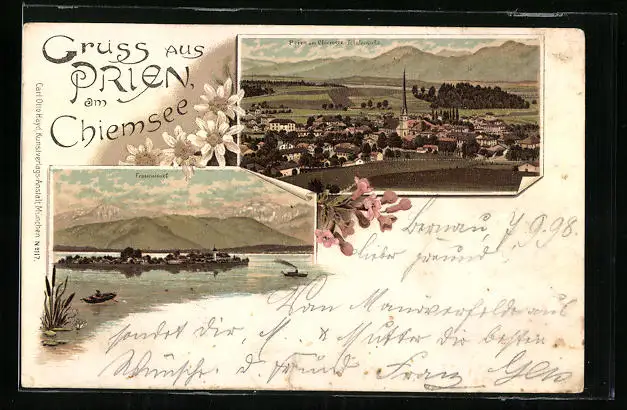 Gruss aus
PRIEN,
am
Chiemsee
Prien am Chiemsee
Fraueninsel
Carl Otto Hayd, Kunstverlags-Anstalt, München № 117.
Bernau, 7.9.98.
Lieber Freund!
Von Manöverfelde aus
sendet dir, M. & Mutter die besten
Wünsche. d. Freund Franz